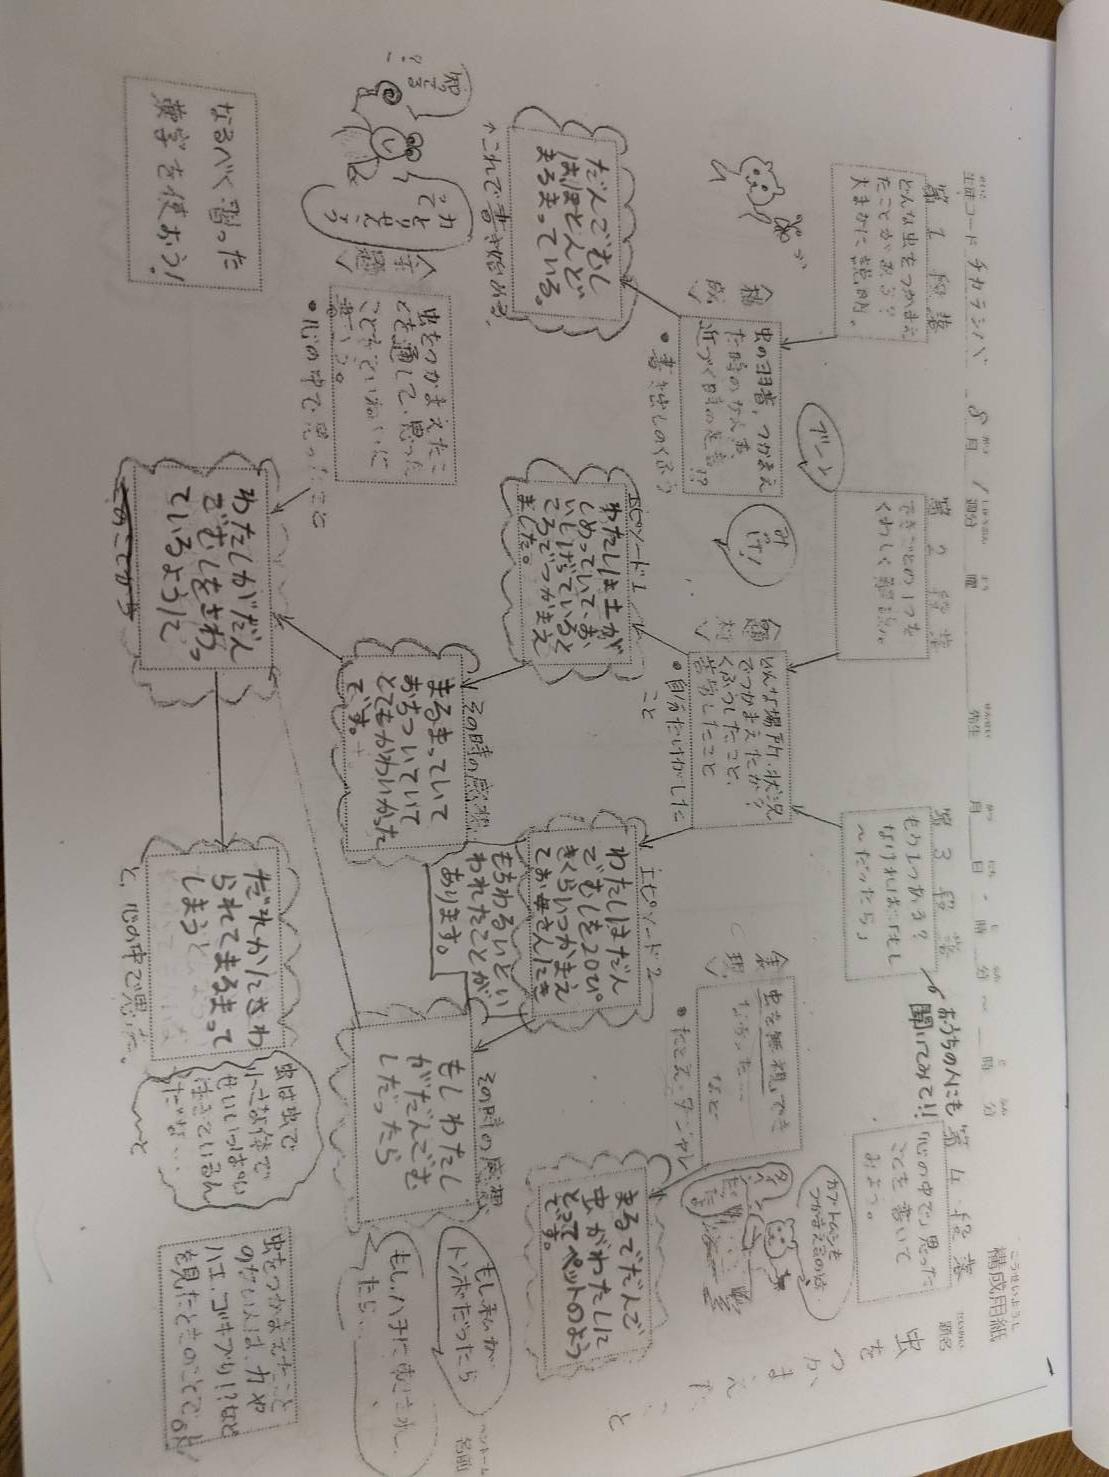 構成用紙
こうせいようし
題名
虫をつかまえたこと
ペンネーム
名前
生徒コード チカラシバ 8月1週分 曜 先生 月 日・時 分〜 時 分
第1段落
どんな虫をつかまえ
たことがある?
大まかに説明。
虫の習者,つかまえ
た時の
近づく時の
・書き出しのくふう
だんごむし
はほとんど
まるまっている。
↑これで書き始める。
ブーン
第2段落
できごとの1つを
くわしく解説。
みっけ!
題材
どんな場所・状況
でつかまえたか?
くふうしたこと、
苦労したこと
・自分だけがした
こと
エピソード1
わたしは土が
しめっていて、お
いしげっていると
ころでつかまえ
ました。
その時の感想
まるまっていて
おちついていて
とてもかわいかった
です。
第3段落
もう1つある?
なければ「もし
〜だったら」
おうちの人にも
聞いてみて!!
表現
虫を無視」でき
なかった…
など
・たとえ・ダジャレ
エピソード2
わたしはだん
ごむしを20ぴ
きくらいつかまえ
てお母さんにき
もちわるいとい
われたことが
あります。
その時の感想
もしわたし
がだんごむ
しだったら
もし私が
トンボだったら
もしハチにさされ
たら…
第4段落
「心の中で」思った
ことを書いて
みよう。
カブトムシを
つかまえるのは、
まるでだんご
虫がわたしに
とってペットのよう
です。
主題
虫をつかまえたこ
とを通して、思った
ことをていねいに
書こう。
・心の中で思ったこと
わたしがだん
ごむしをさわっ
ているようにて
このことから
だれかにさわ
られてまるまって
しまうと
と、心の中で思った。
虫は虫で
小さな体で
せいいっぱい
生きているん
だな…
〜と
虫をつかまえたこと
のない人は、カや
ハエ、ゴキブリ!?など
を見たときのことでOK!
なるべく習った
漢字を使おう!